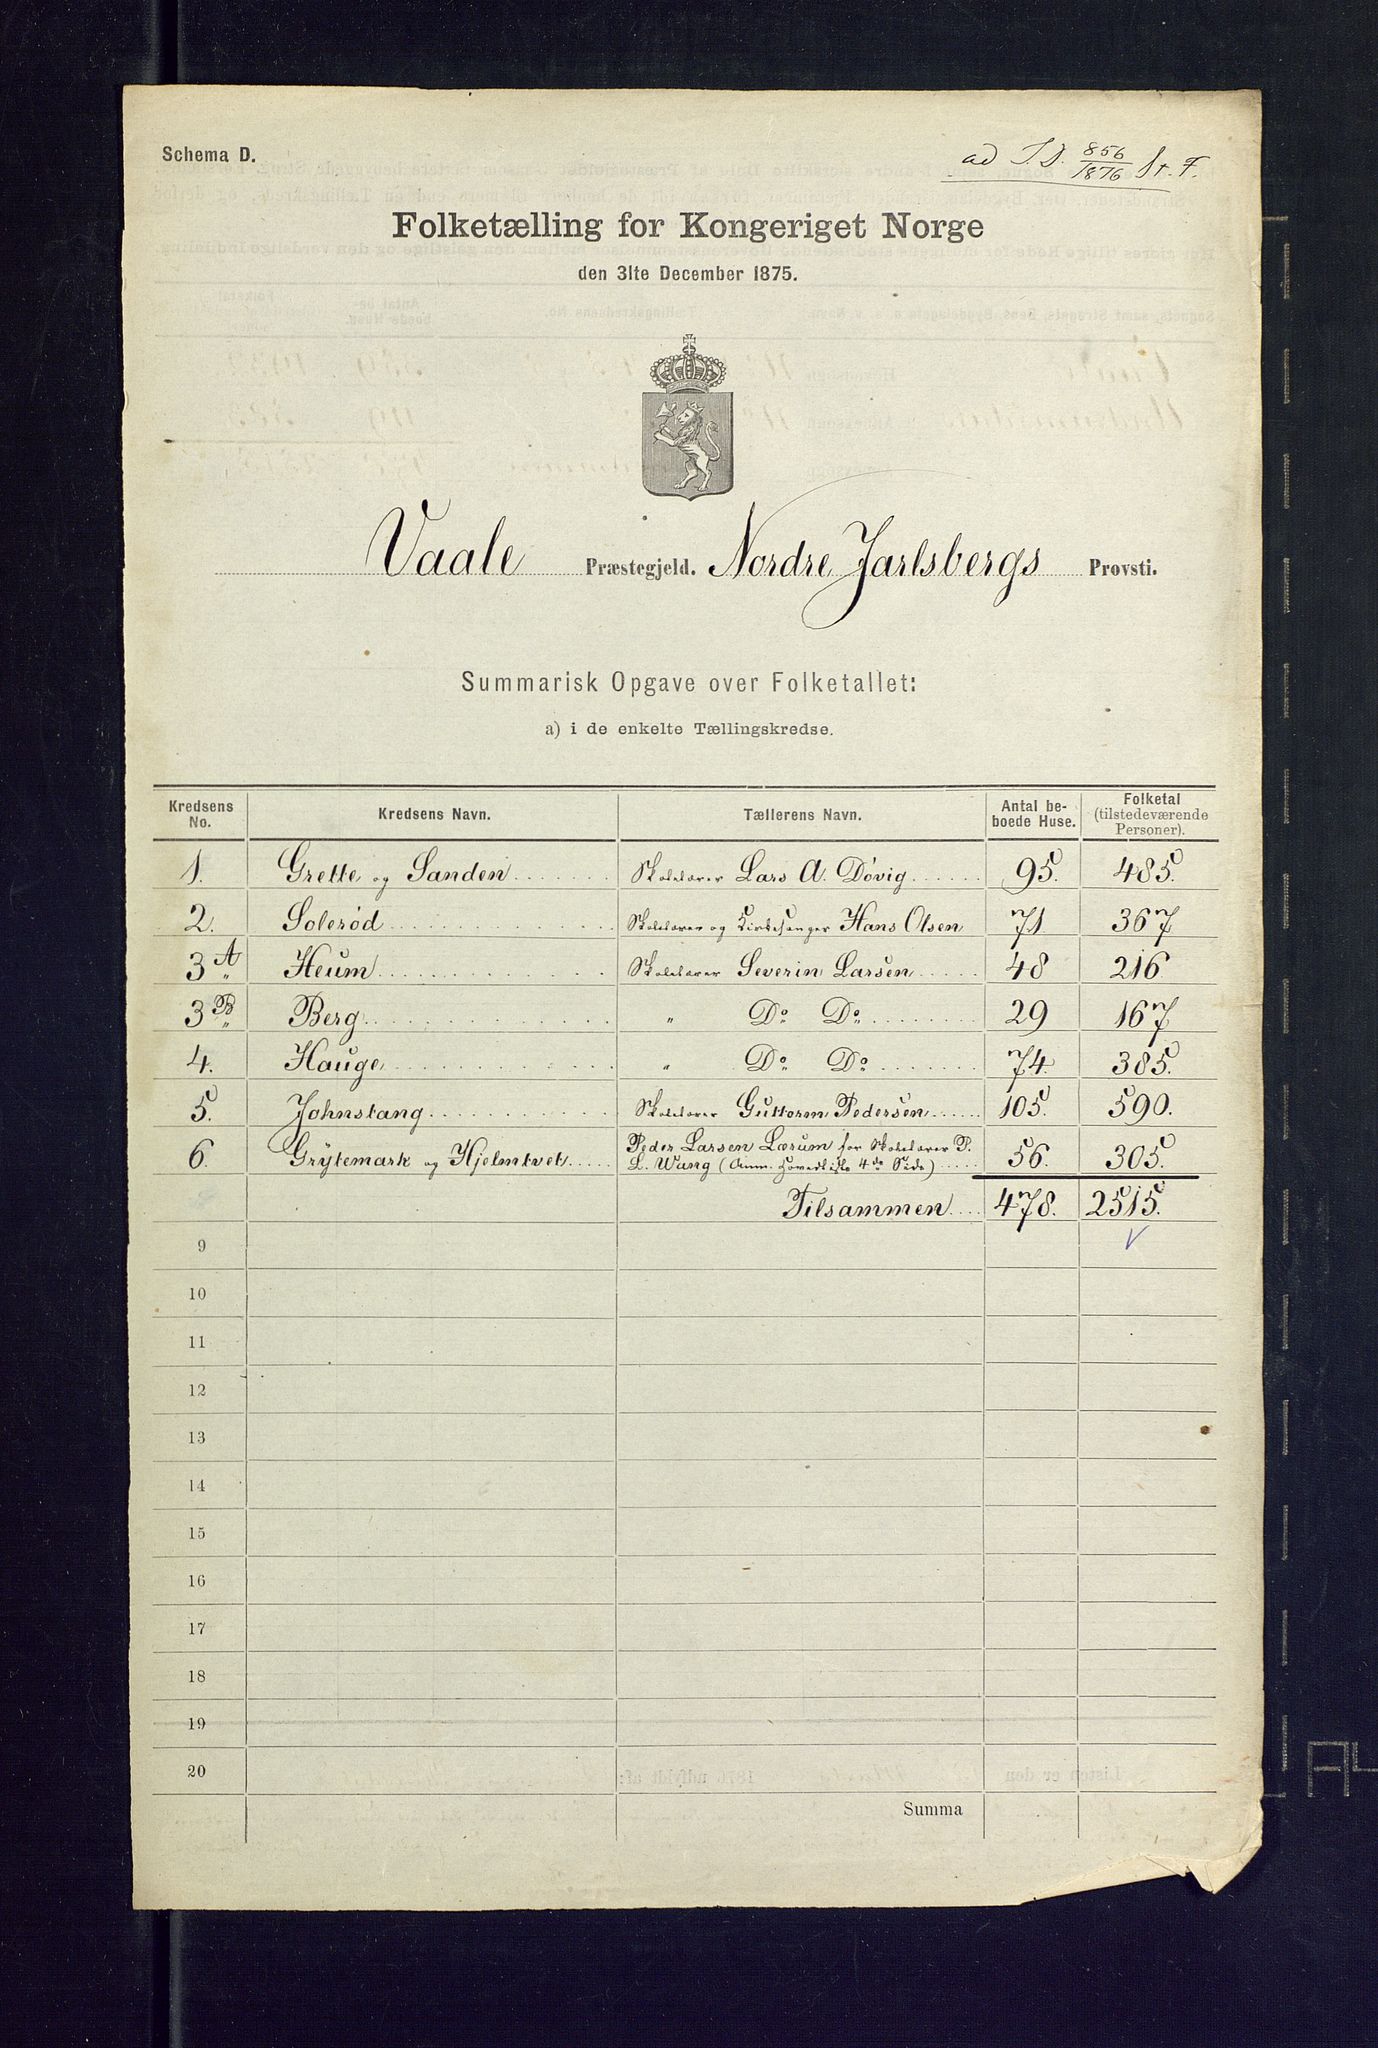 Schema D.
ad J. D. 856/1876 St. F.
Folketælling for Kongeriget Norge
den 31te December 1875.
Vaale Præstegjeld. Nordre Jarlsbergs Provsti.
Summarisk Opgave over Folketallet:
a) i de enkelte Tællingskredse.
Kredsens No. Kredsens Navn. Tællerens Navn. Antal beboede Huse. Folketal (tilstedeværende Personer).
1. Grette og Sanden Skolelærer Lars A. Døvig 95. 485.
2. Solerød Skolelærer og Kirkesanger Hans Olsen 71 367
3 A„ Heum Skolelærer Severin Larsen 48 216
3 B„ Berg „ Do Do 29 167
4. Hauge „ Do Do 74 385.
5. Johnstang Skolelærer Guttorm Pedersen 105. 590.
6. Grytemark og Hjelmtvet Peder Larsen Lærum for Skolelærer P. L. Wang (Anm. Hovedliste 4de Side) 56. 305.
Tilsammen 478. 2515.
9
10
11
12
13
14
15
16
17
18
19
20
Summa